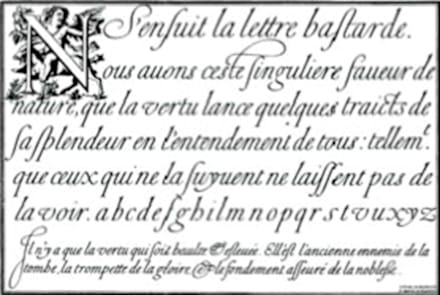 S'ensuit la lettre bastarde.
Nous auons ceste singuliere faueur de
nature, que la vertu lance quelques traicts de
sa splendeur en l'entendement de tous : tellemt.
que ceux qui ne la suyuent ne laissent pas de
la voir. a b c d e f g h i l m n o p q r s t v u x y z
Il n'y a que la vertu qui soit haulte & esleuée. Ell'est l'ancienne ennemie de la
tombe, la trompette de la gloire, & le fondement asseuré de la noblesse.